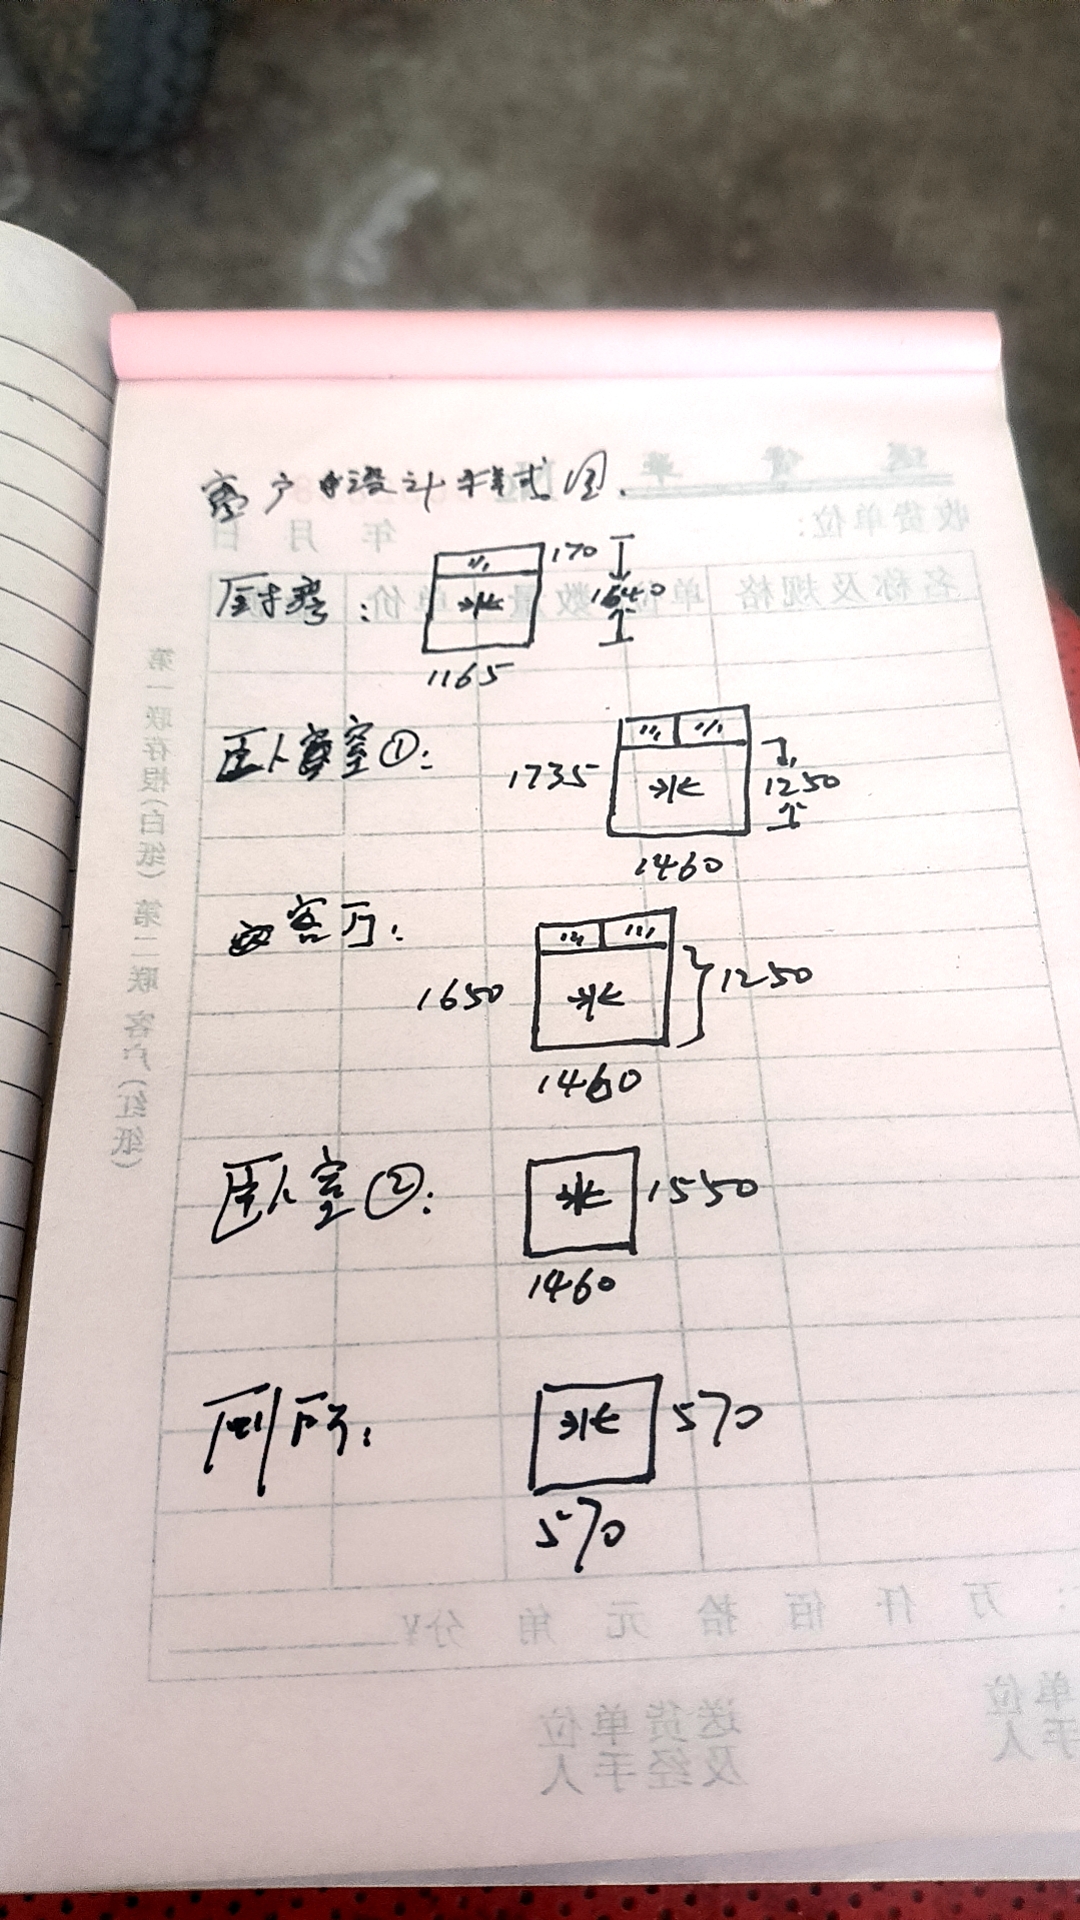 客户设计样式图.
送货单
收货单位:
年 月 日
名称及规格 单位 数量 单价
厨房: 170 1640
1165
卧室①: 1735 1250
1460
客厅: 1650 1250
1460
卧室②: 1550
1460
厕所: 570
570
第一联存根(白纸) 第二联客户(红纸)
万 仟 佰 拾 元 角 分¥
送货单位
及经手人
单位
手人